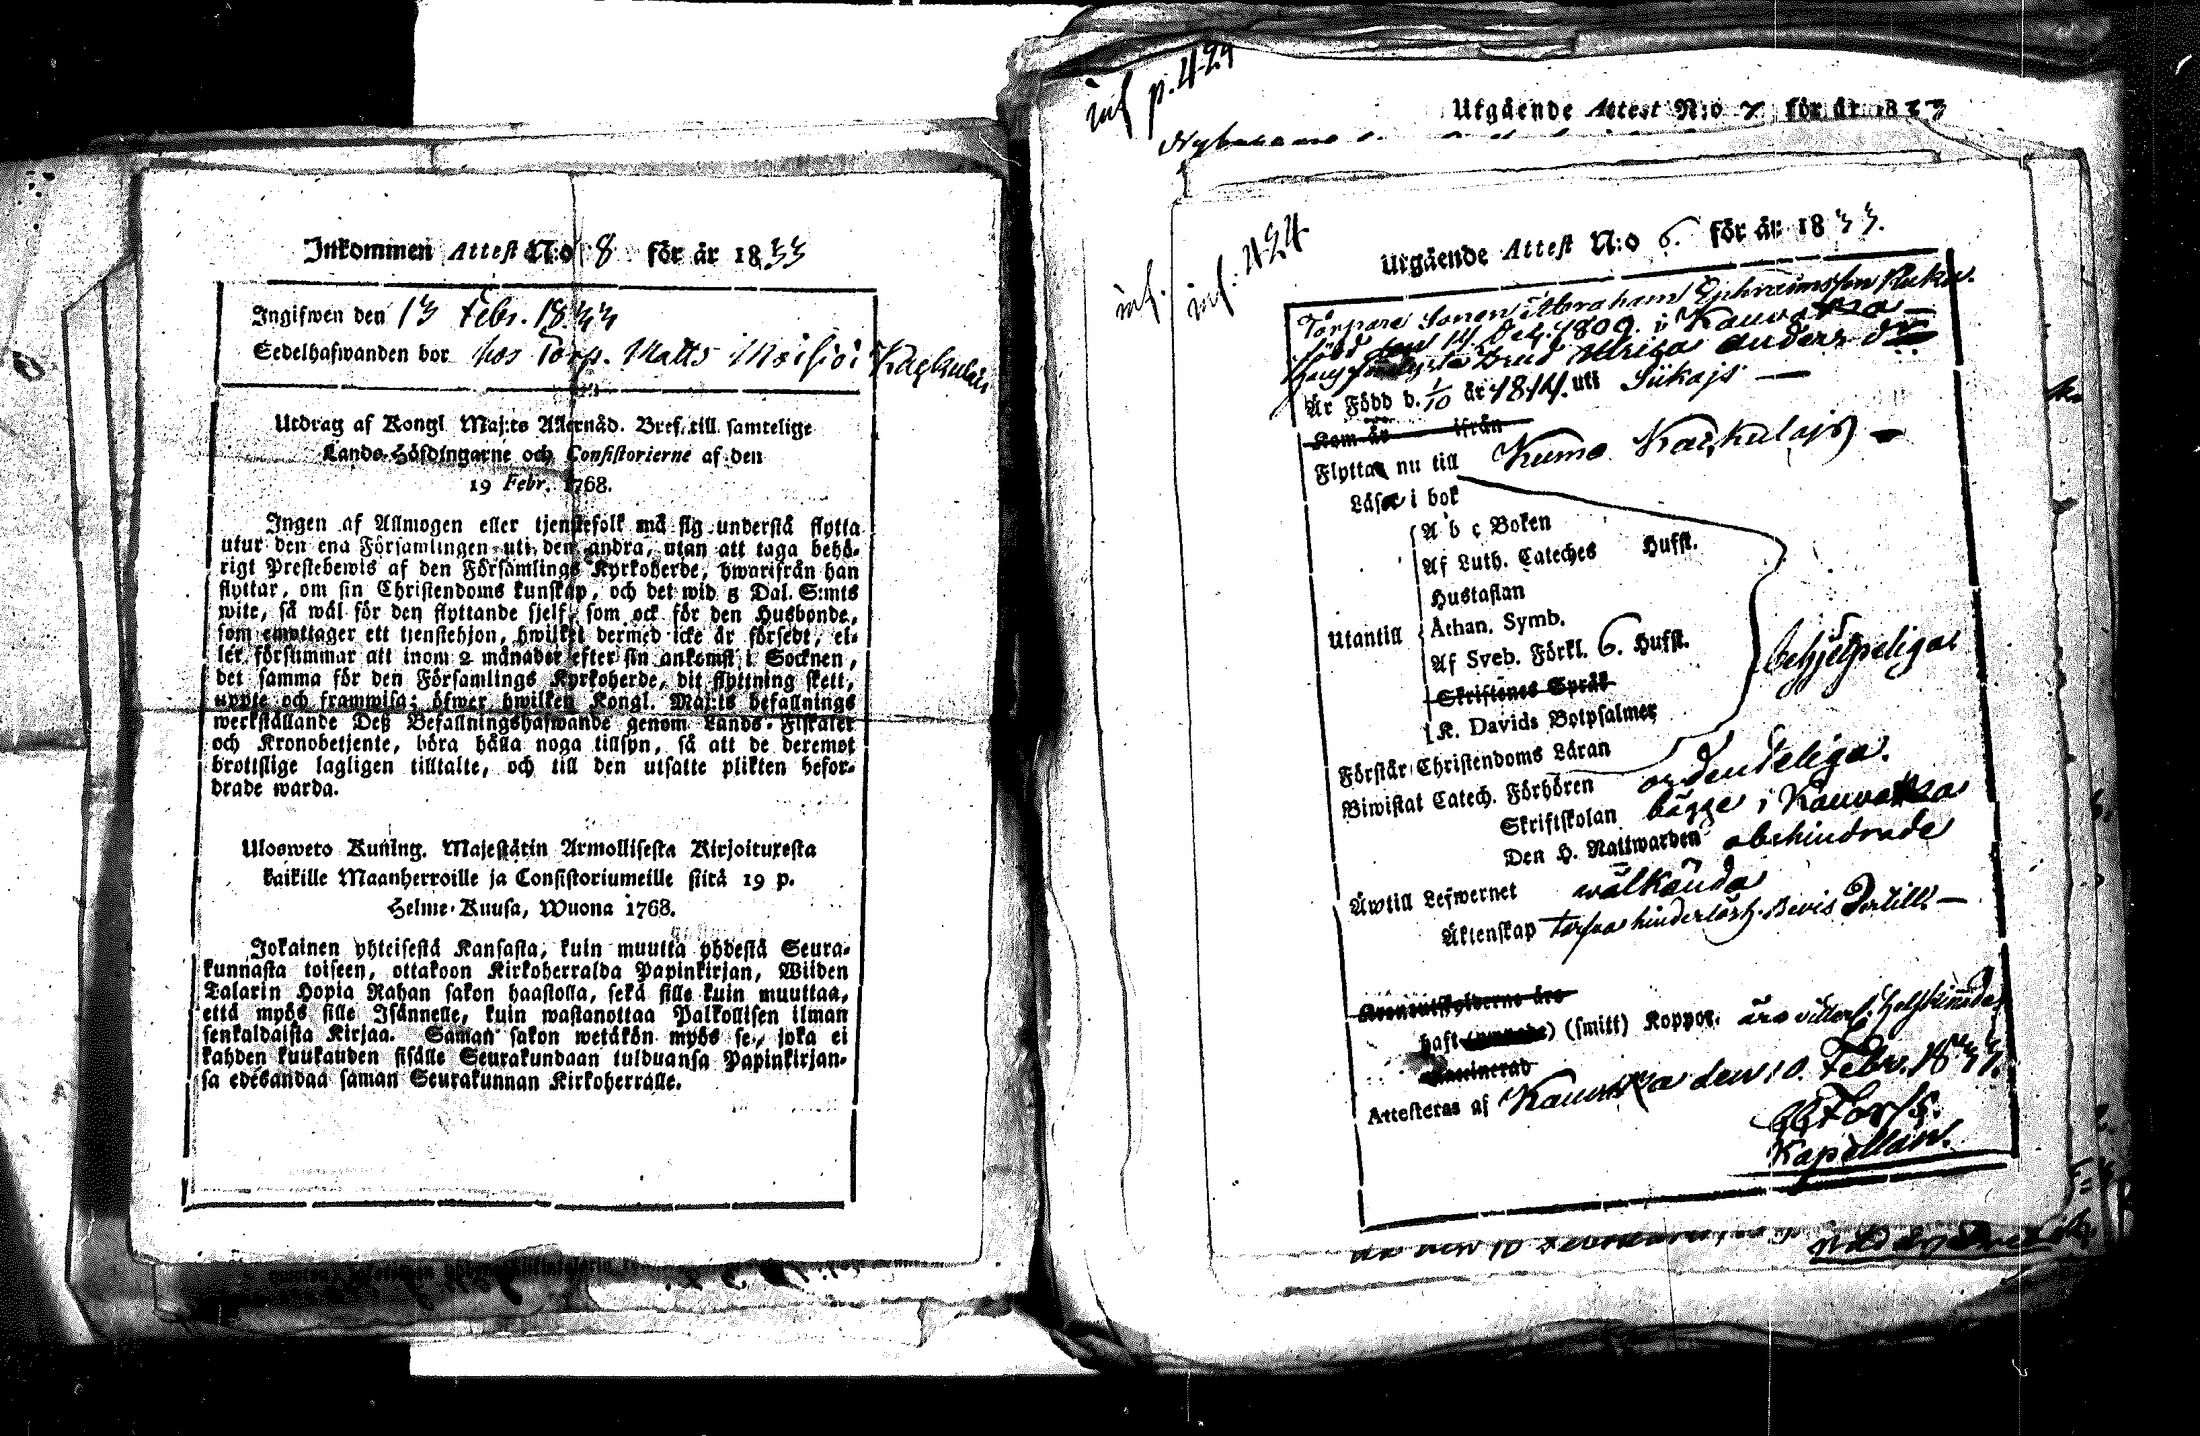 Inkommen Attest N:o 8 för år 1833
Ingifwen den 13 Febr. 1833
Sedelhafwanden bor hos Torp. Matts Moisioi
Utdrag af Kongl Maj:ts Allernåd. Bref till samtelige
Lands-Höfdingarne och Consistorierne af den
19 Febr. 1768.
Ingen af Allmogen eller tjenstefolk må sig understå flytta
utur den ena Församlingen uti den andra, utan att taga behö-
rigt Prestebewis af den Församlings Kyrkoherde, hwarifrån han
flyttar, om sin Christendoms kunskap, och det wid 5 Dal. S:mts
wite, så wäl för den flyttande sjelf, som ock för den Husbonde,
som emottager ett tjenstehjon, hwilket dermed icke är försedt, el-
ler försummar att inom 2 månader efter sin ankomst i Socknen,
det samma för den Församlings Kyrkoherde, dit flyttning skett,
uppte och framwisa; öfwer hwilken Kongl. Maj:ts befallnings
werkställande Deß Befallningshafwande genom Lands-Fiskaler
och Kronobetjente, böra hålla noga tillsyn, så att de deremot
brottslige lagligen tilltalte, och till den utsatte plikten befor-
drade warda.
Ulosweto Kuning. Majestätin Armollisesta Kirjoituxesta
kaikille Maanherroille ja Consistoriumeille siitä 19 p.
Helme-Kuusa, Wuona 1768.
Jokainen yhteisestä Kansasta, kuin muutta yhdestä Seura-
kunnasta toiseen, ottakoon Kirkoherralda Papinkirjan, Wiiden
Talarin Hopia Rahan sakon haastolla, sekä sille kuin muuttaa,
että myös sille Isännelle, kuin wastanottaa Palkollisen ilman
senkaldaista Kirjaa. Saman sakon wetäkön myös se, joka ei
kahden kuukauden sisälle Seurakundaan tulduansa Papinkirjan-
sa edesandaa saman Seurakunnan Kirkoherralle.
inf p. 424
Utgående Attest N:o 7 för år 1833
inf.
inf. 424
Utgående Attest N:o 6. för år 1833.
Torpare Sonen Abraham Ephraimsson
född den 14 Oct. 1809. i Kauvatsa
Brud Ulrica Anders dr
Är Född d. 1/10 år 1814. uti Siikais
Kom år ifrån
Flyttar nu till Kumo
Läser i bok
A b c Boken
Af Luth. Cateches Hufst.
Hustaflan
Utantill Athan. Symb.
Af Sveb. Förkl. 6. Hufst.
behjelpeliga
Skriftenes Språk
K. Davids Botpsalmer
Förstår Christendoms Läran
Biwistat Catech. Förhören ordenteliga.
Skriftskolan bägge i Kauvatsa
Den H. Nattwarden obehindrade
Äwtill Lefwernet wälkända
Äktenskap torfva hinderlösh. Bevis Dertill
haft (smitt) Koppor. äro
Attesteras af Kauvatsa den 10. Febr. 1833.
Kapellan.